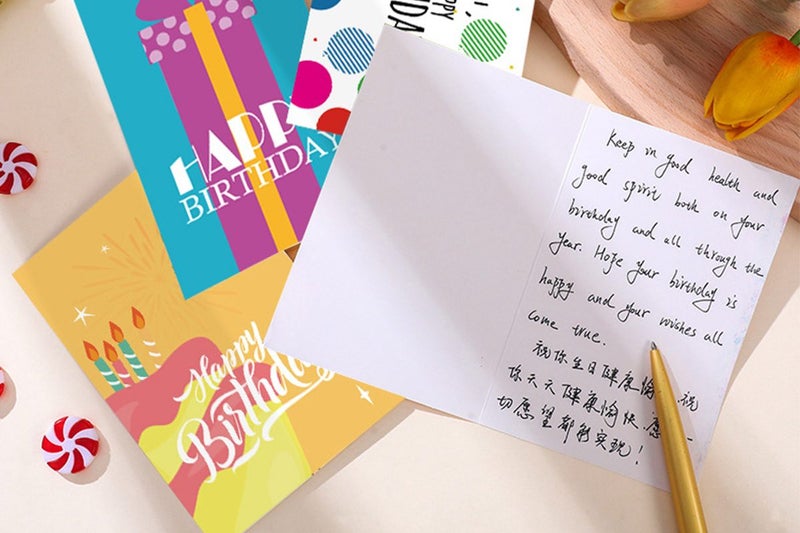 HAPPY
BIRTHDAY
Happy
Birthday
Keep in good health and
good spirit both on your
birthday and all through the
year. Hope your birthday is
happy and your wishes all
come true.
祝你生日健康愉 祝
你天天健康愉快.愿
切愿望都能实现!